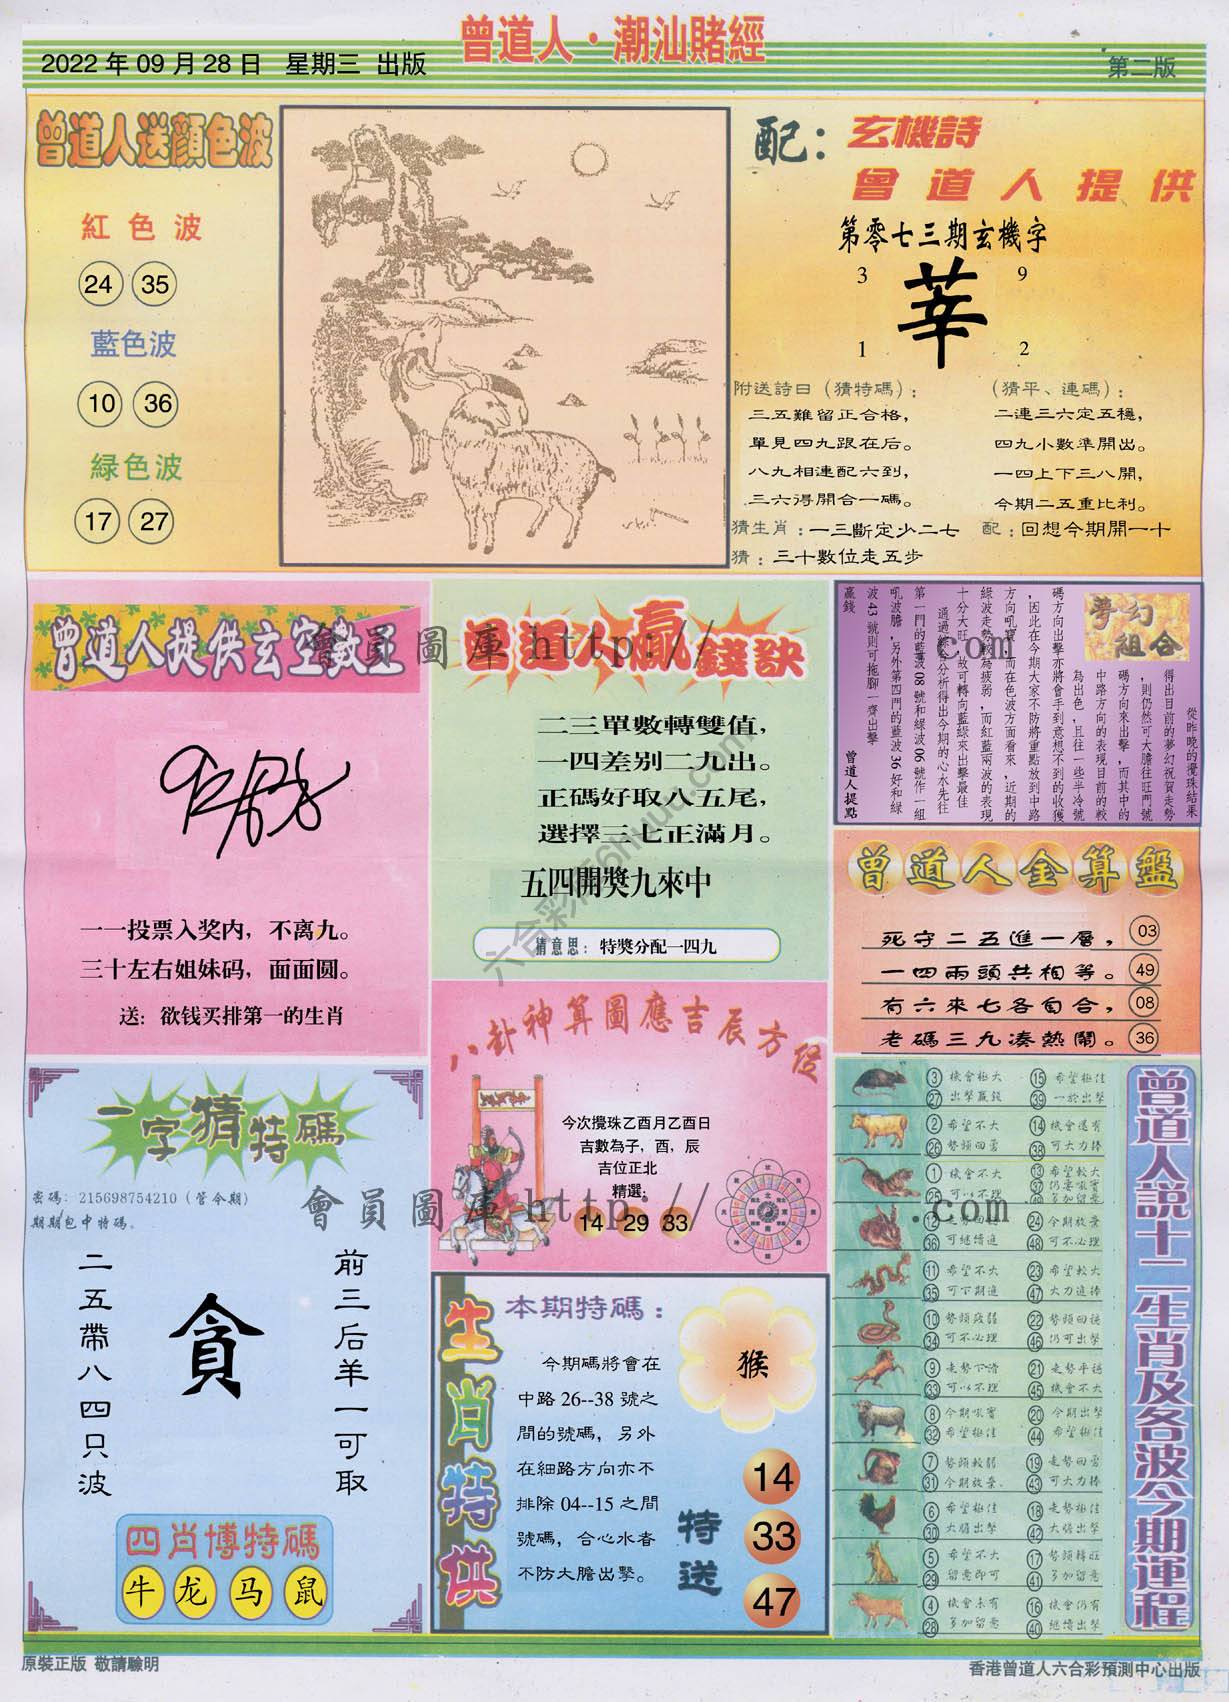 曾道人·潮汕賭經
2022年09月28日 星期三 出版
第二版
曾道人送顏色波
紅色波
24 35
藍色波
10 36
緑色波
17 27
配：玄機詩
曾道人提供
第零七三期玄機字
3 9
莘
1 2
附送詩曰（猜特碼）：
三五難留正合格，
單見四九跟在后。
八九相連配六到，
三六得開合一碼。
（猜平、連碼）：
二連三六定五穩，
四九小數準開出。
一四上下三八開，
今期二五重比利。
猜生肖：一三斷定少二七
配：回想今期開一十
猜：三十數位走五步
曾道人提供玄空數王
一一投票入奖内，不离九。
三十左右姐妹码，面面圆。
送：欲钱买排第一的生肖
會員圖庫 http://
.com
曾道人贏錢訣
二三單數轉雙值，
一四差别二九出。
正碼好取八五尾，
選擇三七正滿月。
五四開獎九來中
猜意思：特獎分配一四九
六合彩库6huu.com
夢幻組合
從昨晚的攪珠結果
得出目前的夢幻祝賀走勢
，則仍然可大膽往旺門號
碼方向來出擊，而其中的
中路方向的表現目前的較
為出色，且往一些半冷號
碼方向出擊亦將會手到意想不到的收獲
，因此在今期大家不防將重點放到中路
方向吼寶，而在色波方面看來，近期的
綠波走勢較為疲弱，而紅藍兩波的表現
十分大旺，故可轉向藍綠來出擊最佳
通過綜合分析得出今期的心水先往
第一門的藍波08號和綠波06號作一組
吼波膽，另外第四門的藍波36好和綠
波43號則可拖腳一齊出擊
贏錢
曾道人提點
曾道人金算盤
死守二五進一層， 03
一四兩頭共相等。 49
有六來七各自合， 08
老碼三九凑熱鬧。 36
一字猜特碼
密碼：215698754210（管令期）
期期包中特碼。
前三后羊一可取
貪
二五帶八四只波
四肖博特碼
牛 龙 马 鼠
八卦神算圖應吉辰方位
今次攪珠乙酉月乙酉日
吉數為子，酉，辰
吉位正北
精選：
14 29 33
會員圖庫 http://
.com
生肖特供
本期特碼：
今期碼將會在
中路26--38號之
間的號碼，另外
在細路方向亦不
排除04--15之間
號碼，合心水者
不防大膽出擊。
猴
特送
14
33
47
曾道人説十二生肖及各波今期運程
3 機會極大 15 希望極佳
27 出擊贏錢 39 一於出擊
2 希望不大 14 機會還有
26 勢頭回勇 38 可大力捧
1 機會不大 13 希望較大
25 可以不理 37 仍要吼實
49 多加留意
12 24 今期放棄
36 可繼續進 48 可不必理
11 希望不大 23 希望較大
35 可下期進 47 大力進捧
10 勢頭疲弱 22 勢頭回穩
34 可不必理 46 仍可出擊
9 走勢下滑 21 走勢平穩
33 可以不理 45 機會不大
8 今期吼實 20 今期出擊
32 希望極佳 44 希望極佳
7 勢頭較弱 19 走勢回勇
31 今期放棄、 43 可大力捧
6 希望極佳 18 走勢極佳
30 大膽出擊 42 大膽出擊
5 希望不大 17 勢頭轉旺
29 留意即可 41 多加留意
4 機會未有 16 機會仍有
28 多加留意 40 繼續出擊
原裝正版 敬請驗明
香港曾道人六合彩預測中心出版